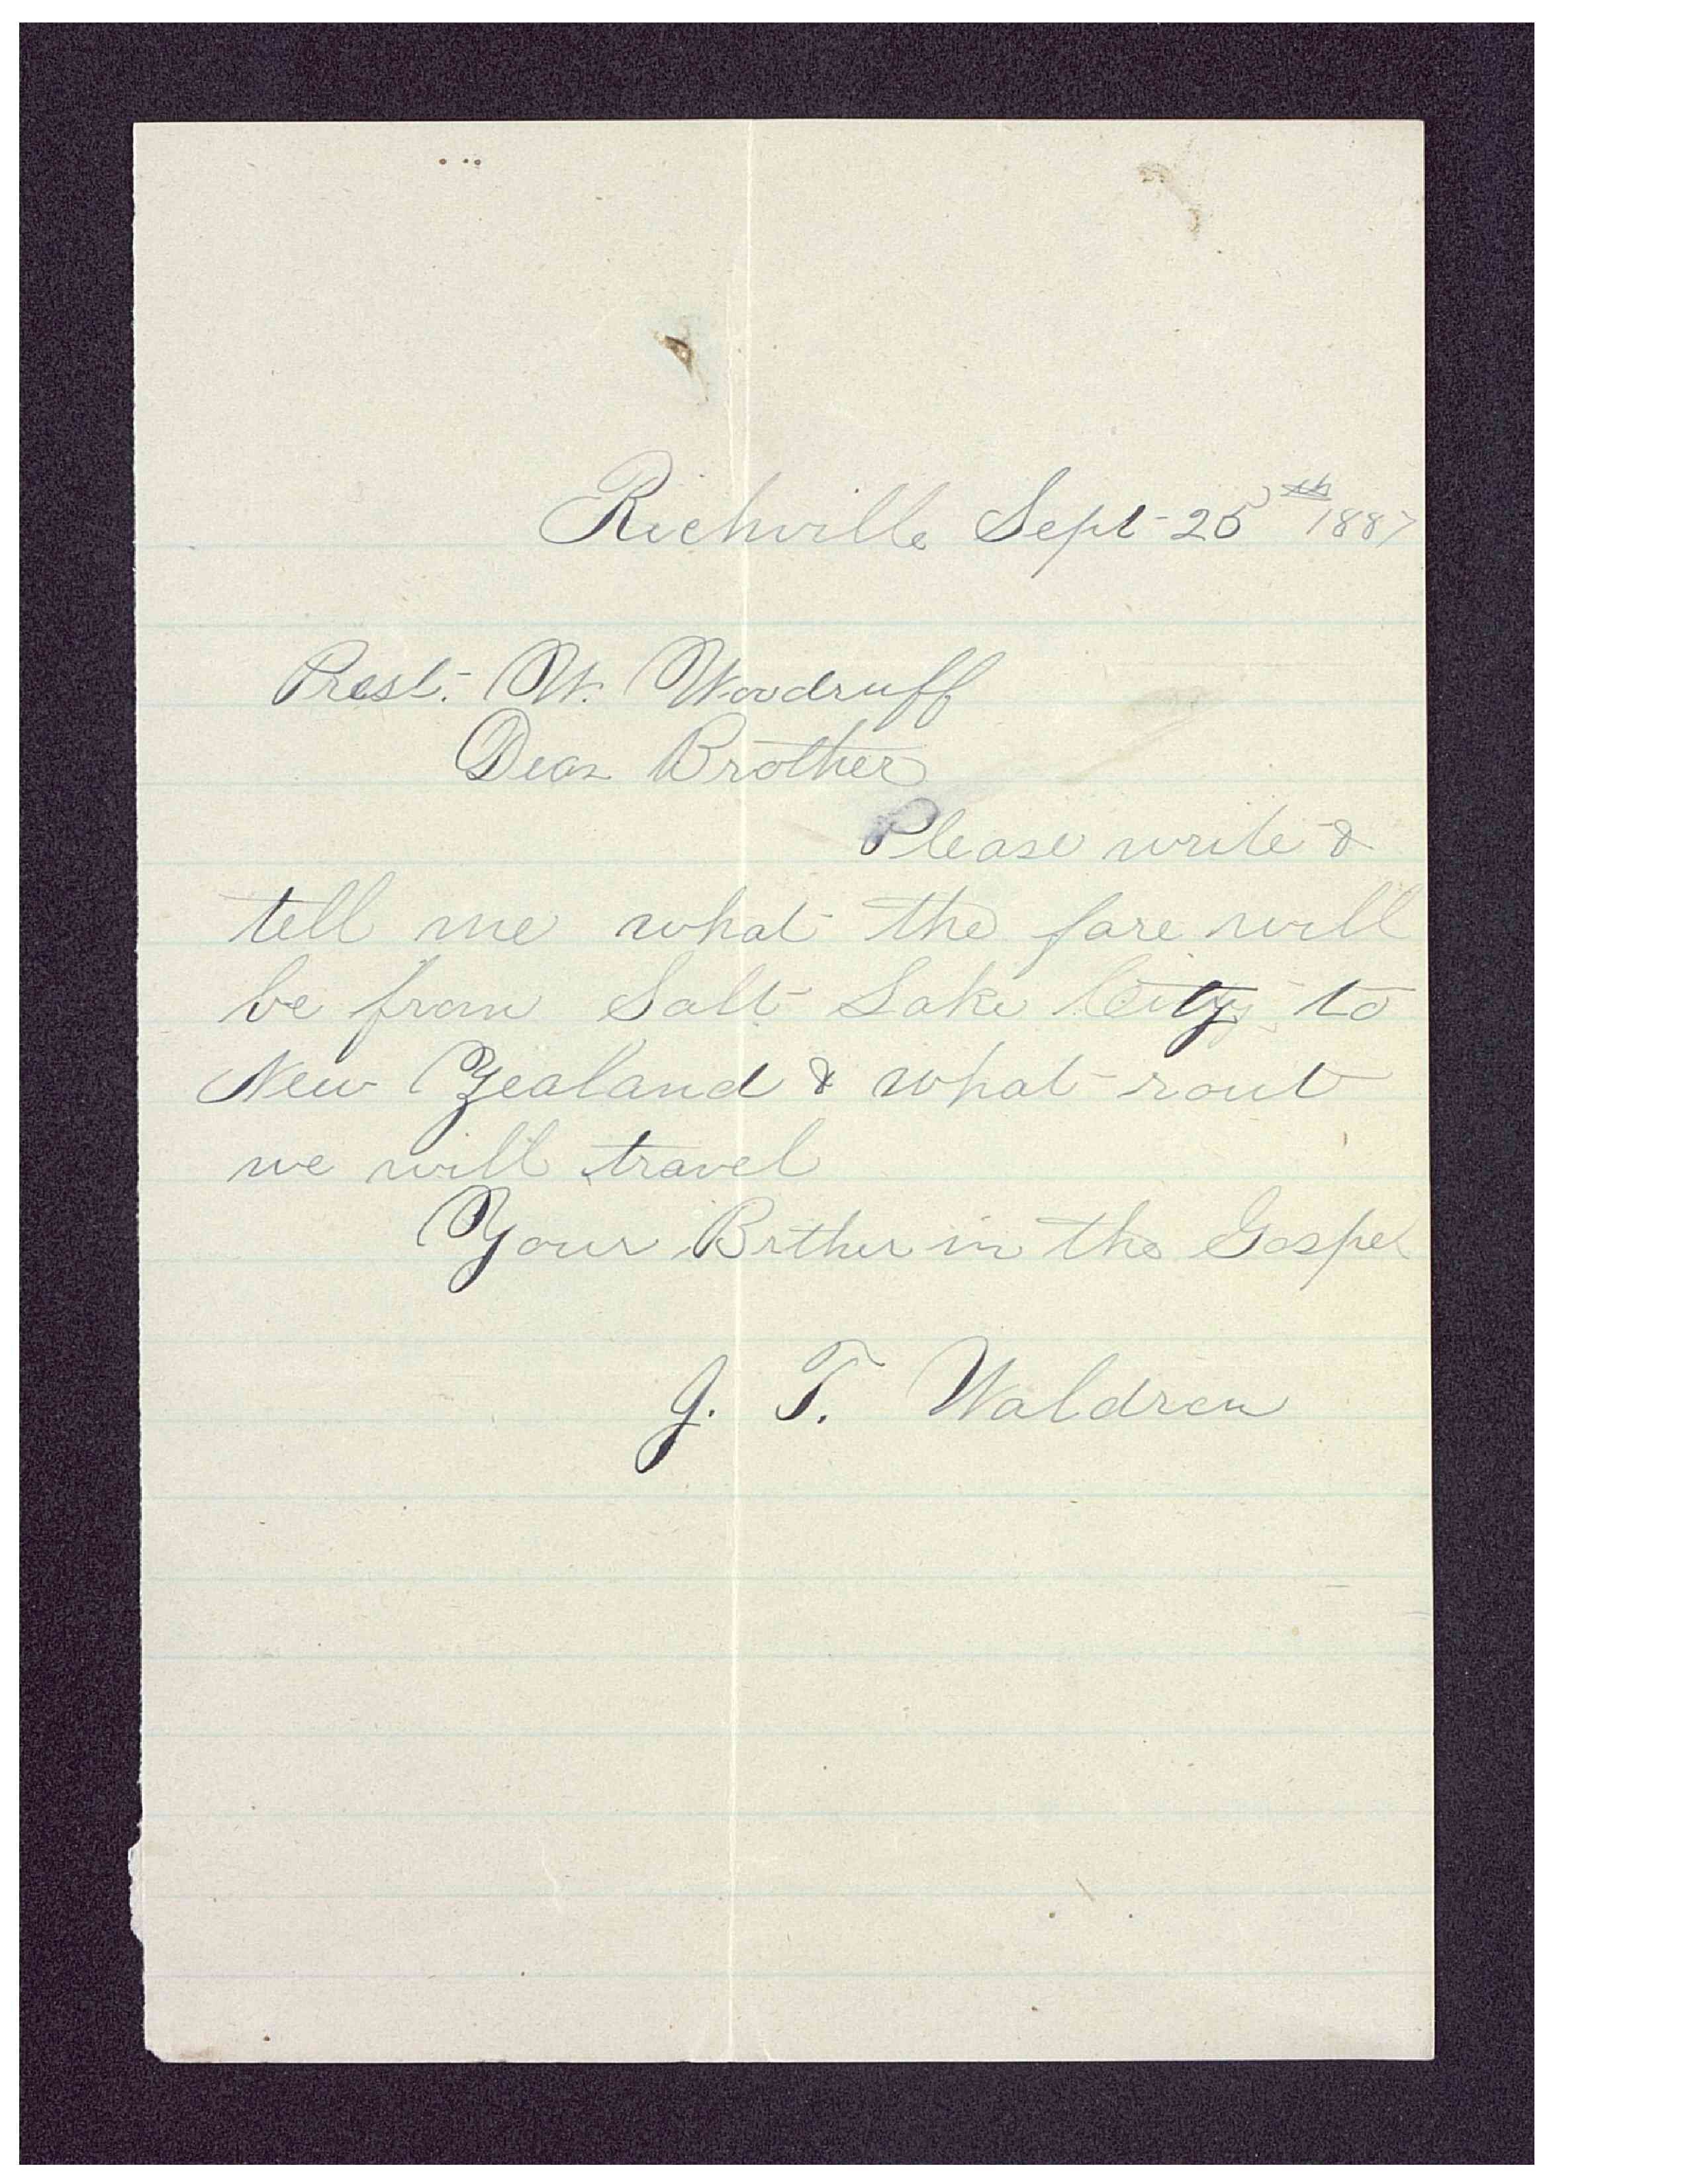 Richville Sept 25th 1887
Prest. W. Woodruff
Dear Brother
Please write &
tell me what the fare will
be from Salt Lake City to
New Zealand & what rout
we will travel
Your Brther in the Gospel
J. T. Waldren